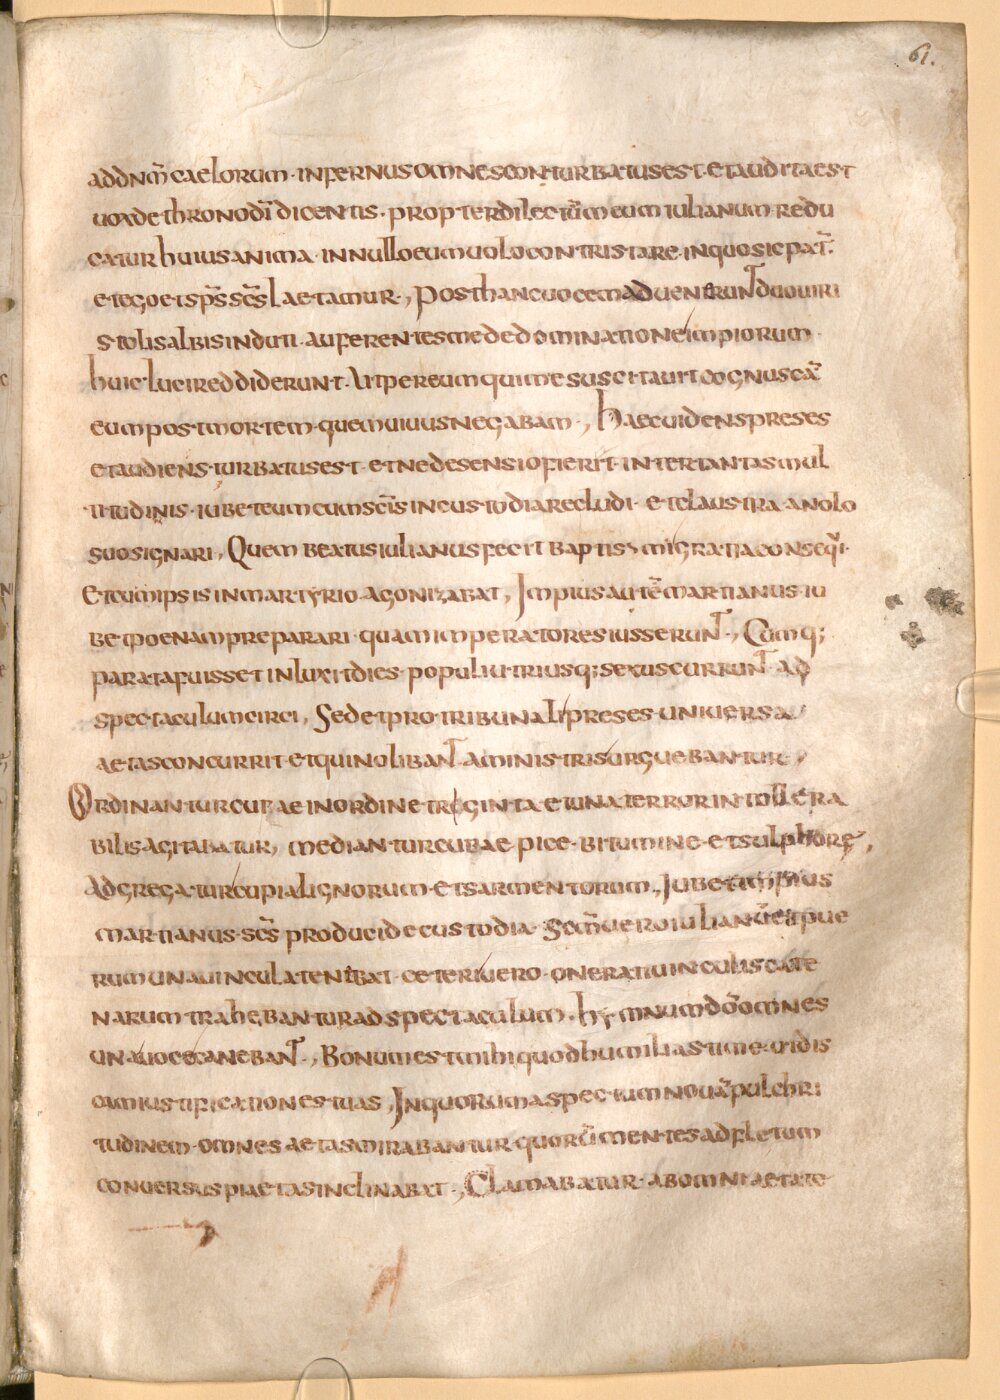 61.
addnm̄ caelorum · infernus omnes conturbatus est · et audita est
uox de throno dī dicentis · propter dilectūm eum iulianum redu
catur huius anima · in nullo eum uolo contristare · in quo sic pat̄
et ego et sp̄s sc̄s laetamur ·, Post hanc uocem aduenerunt duo uiri
stolis albis induti · auferentes me de dominatione impiorum ·
huic luci reddiderunt · Ut per eum qui me suscitauit cognuscā
eum post mortem · quem uiuus negabam ·, haec uidens preses
et audiens · turbatus est · et ne desensio fierit · inter tantas mul
titudinis · iubet eum cum sc̄is in custodia recludi · et claustra · anolo
suo signari, Quem beatus iulianus fecit baptismi gratia consequi ·
Et eum ipsis in martyrio · agonizabat, Impius autē martianus · iu
bet poenam preparari · quam imperatores iusserunt ·, Cumq;
parata fuisset inluxit dies · populi utriusq; sexus currunt · ad
spectaculum circi, Sedet pro tribunali preses · uniuersa
aetas concurrit · et qui nolibant · a ministris urguebantur,
Ordinantur cupae in ordine triginta · et una terror intollera
bilis agitabatur, mediantur cupae · pice · bitumine · et sulphore,
Adgregatur cupia lignorum · et sarmentorum, Iubet impius
martianus · sc̄s produci de custodia · Sc̄m uero iulianū et pue
rum una uincula tenibat · ceteri uero · onerati uinculis cate
narum trahebantur ad spectaculum · hymnum dn̄o omnes
una uoce canebant ·, Bonum est mihi quod humiliasti me · ut idis
cam iustificationes tuas, In quorum aspectum nouā pulchri
tudinem · omnes aetas mirabantur · quorū mentes ad fletum
conuersus piaetas inclinabat ·, Clamabatur · ab omni aetate